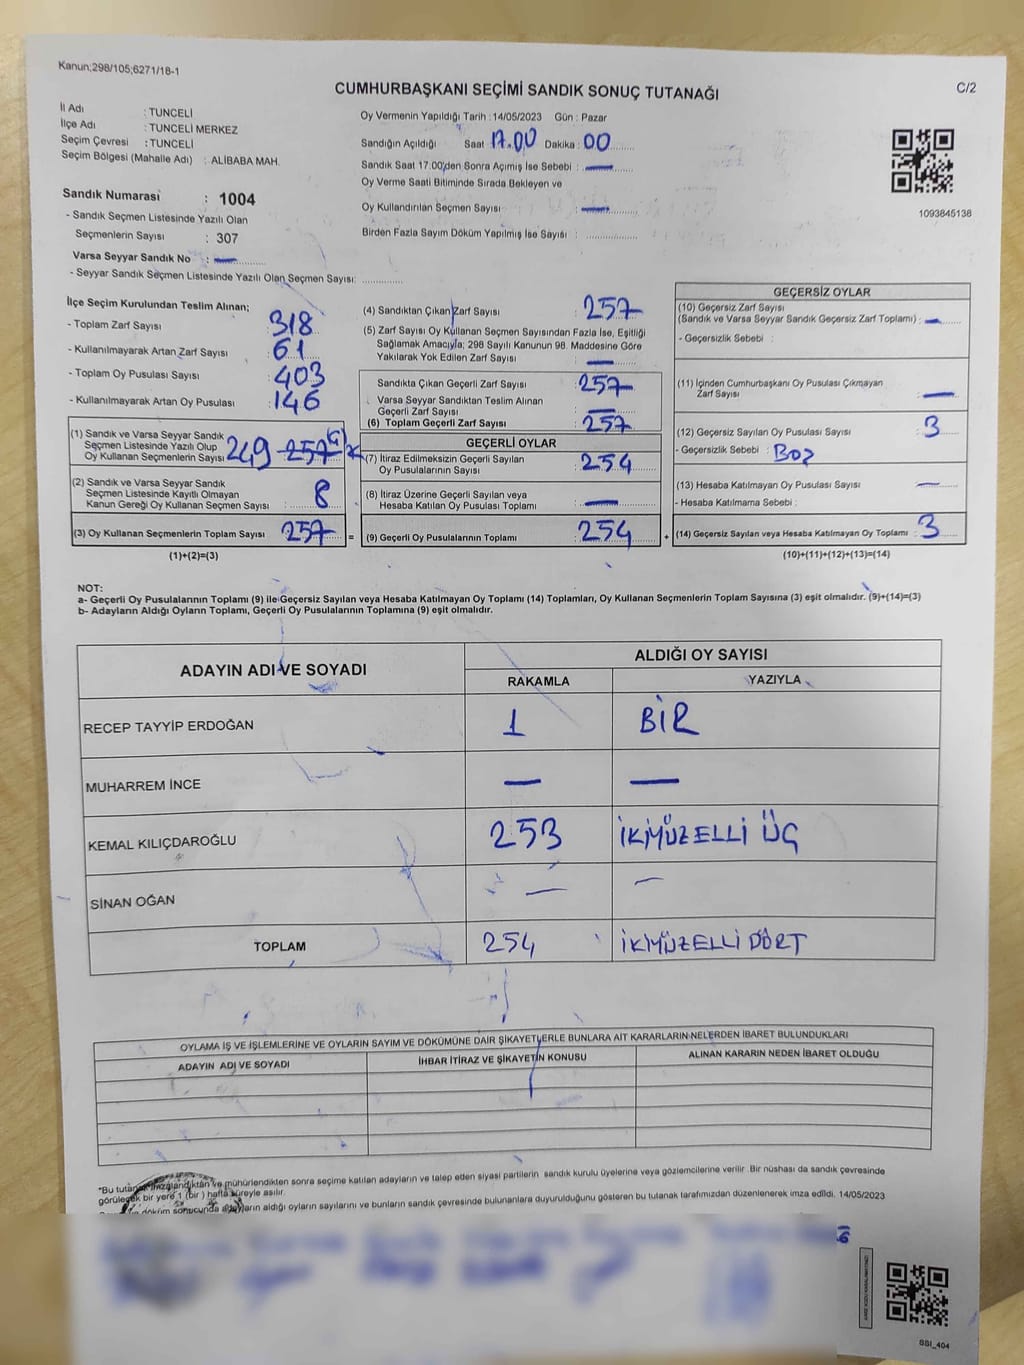 Kanun;298/105;6271/18-1
CUMHURBAŞKANI SEÇİMİ SANDIK SONUÇ TUTANAĞI
C/2
İl Adı : TUNCELİ
İlçe Adı : TUNCELİ MERKEZ
Seçim Çevresi : TUNCELİ
Seçim Bölgesi (Mahalle Adı) : ALİBABA MAH.
Sandık Numarası : 1004
- Sandık Seçmen Listesinde Yazılı Olan
Seçmenlerin Sayısı : 307
Varsa Seyyar Sandık No : —
- Seyyar Sandık Seçmen Listesinde Yazılı Olan Seçmen Sayısı: ..............
Oy Vermenin Yapıldığı Tarih : 14/05/2023 Gün : Pazar
Sandığın Açıldığı Saat 17.00 Dakika : 00
Sandık Saat 17.00'den Sonra Açımış İse Sebebi : —
Oy Verme Saati Bitiminde Sırada Bekleyen ve
Oy Kullandırılan Seçmen Sayısı : —
Birden Fazla Sayım Döküm Yapılmış İse Sayısı : ................
1093845138
İlçe Seçim Kurulundan Teslim Alınan;
- Toplam Zarf Sayısı : 318
- Kullanılmayarak Artan Zarf Sayısı : 61
- Toplam Oy Pusulası Sayısı : 403
- Kullanılmayarak Artan Oy Pusulası : 146
(1) Sandık ve Varsa Seyyar Sandık
Seçmen Listesinde Yazılı Olup
Oy Kullanan Seçmenlerin Sayısı 249 257
(2) Sandık ve Varsa Seyyar Sandık
Seçmen Listesinde Kayıtlı Olmayan
Kanun Gereği Oy Kullanan Seçmen Sayısı : 8
(3) Oy Kullanan Seçmenlerin Toplam Sayısı : 257 =
(1)+(2)=(3)
(4) Sandıktan Çıkan Zarf Sayısı : 257
(5) Zarf Sayısı Oy Kullanan Seçmen Sayısından Fazla İse, Eşitliği
Sağlamak Amacıyla; 298 Sayılı Kanunun 98. Maddesine Göre
Yakılarak Yok Edilen Zarf Sayısı : —
Sandıkta Çıkan Geçerli Zarf Sayısı : 257
Varsa Seyyar Sandıktan Teslim Alınan
Geçerli Zarf Sayısı : —
(6) Toplam Geçerli Zarf Sayısı : 257
GEÇERLİ OYLAR
(7) İtiraz Edilmeksizin Geçerli Sayılan
Oy Pusulalarının Sayısı : 254
(8) İtiraz Üzerine Geçerli Sayılan veya
Hesaba Katılan Oy Pusulası Toplamı : —
(9) Geçerli Oy Pusulalarının Toplamı : 254 +
GEÇERSİZ OYLAR
(10) Geçersiz Zarf Sayısı
(Sandık ve Varsa Seyyar Sandık Geçersiz Zarf Toplamı) : —
- Geçersizlik Sebebi :
(11) İçinden Cumhurbaşkanı Oy Pusulası Çıkmayan
Zarf Sayısı : —
(12) Geçersiz Sayılan Oy Pusulası Sayısı : 3
- Geçersizlik Sebebi : Boş
(13) Hesaba Katılmayan Oy Pusulası Sayısı : —
- Hesaba Katılmama Sebebi :
(14) Geçersiz Sayılan veya Hesaba Katılmayan Oy Toplamı : 3
(10)+(11)+(12)+(13)=(14)
NOT:
a- Geçerli Oy Pusulalarının Toplamı (9) ile Geçersiz Sayılan veya Hesaba Katılmayan Oy Toplamı (14) Toplamları, Oy Kullanan Seçmenlerin Toplam Sayısına (3) eşit olmalıdır. (9)+(14)=(3)
b- Adayların Aldığı Oyların Toplamı, Geçerli Oy Pusulalarının Toplamına (9) eşit olmalıdır.
ADAYIN ADI VE SOYADI
ALDIĞI OY SAYISI
RAKAMLA YAZIYLA
RECEP TAYYİP ERDOĞAN 1 BİR
MUHARREM İNCE — —
KEMAL KILIÇDAROĞLU 253 İKİYÜZELLİ ÜÇ
SİNAN OĞAN — —
TOPLAM 254 İKİYÜZELLİ DÖRT
OYLAMA İŞ VE İŞLEMLERİNE VE OYLARIN SAYIM VE DÖKÜMÜNE DAİR ŞİKAYETLERLE BUNLARA AİT KARARLARIN NELERDEN İBARET BULUNDUKLARI
ADAYIN ADI VE SOYADI İHBAR İTİRAZ VE ŞİKAYETİN KONUSU ALINAN KARARIN NEDEN İBARET OLDUĞU
*Bu tutanak imzalandıktan ve mühürlendikten sonra seçime katılan adayların ve talep eden siyasi partilerin sandık kurulu üyelerine veya gözlemcilerine verilir .Bir nüshası da sandık çevresinde
görülecek bir yere 1 (bir ) hafta süreyle asılır.
döküm sonucunda adayların aldığı oyların sayılarını ve bunların sandık çevresinde bulunanlara duyurulduğunu gösteren bu tutanak tarafımızdan düzenlenerek imza edildi. 14/05/2023
SSI_404